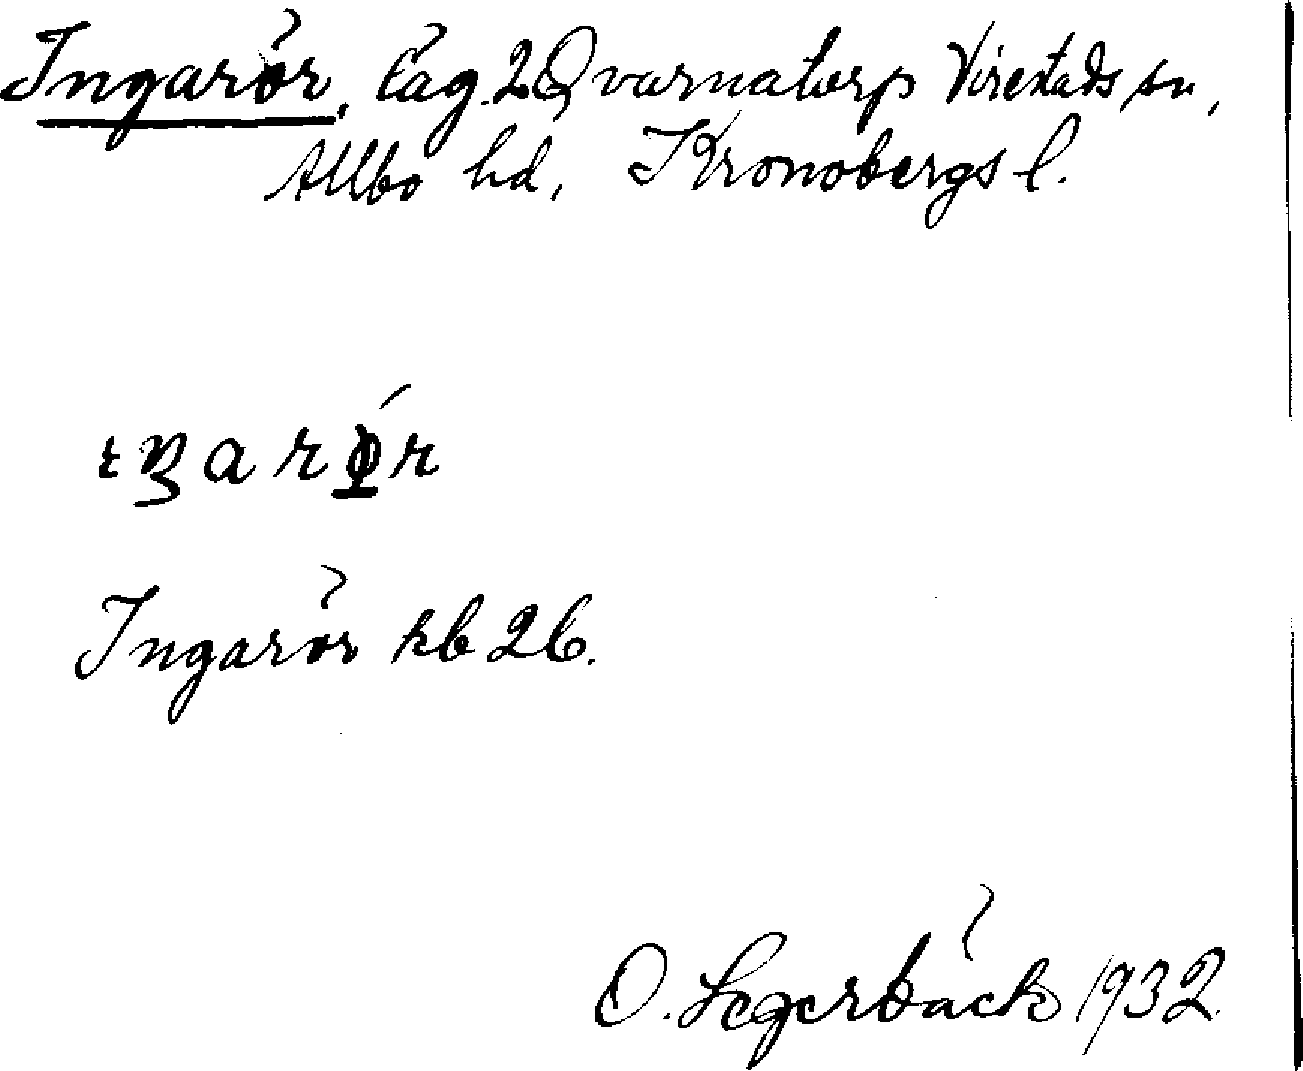 Ingarör, läg. 2 Qvarnatorp Virestads sn,
Allbo hd, Kronobergs l.
Ingarör kb 26.
O. Segerbäck 1932